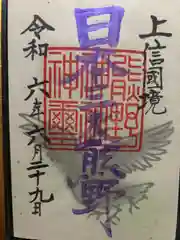 上信國境
日本三熊野
令和六年六月二十九日